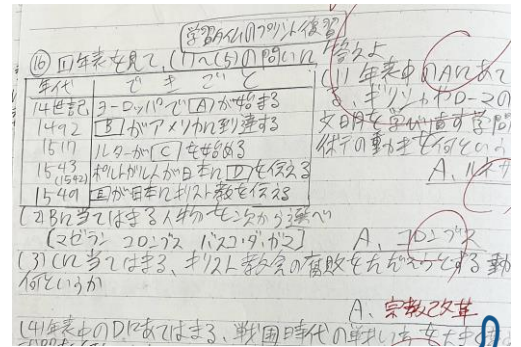 学習タイムのプリント復習
⑯ (1)年表を見て、(1)〜(5)の問いに答えよ
年代 できごと
14世紀 ヨーロッパで[A]が始まる
1492 [B]がアメリカに到達する
1517 ルターが[C]を始める
1543 ポルトガル人が日本に[D]を伝える
(1592)
1549 [E]が日本にキリスト教を伝える
(1) 年表中のAにあて
る、ギリシャやローマの
文明を学び直す学問
の動きを何という
A、ルネサ
(2)Bに当てはまる人物を次から選べ
[マゼラン コロンブス バスコ・ダ・ガマ]
A、コロンブス
(3)Cに当てはまる、キリスト教会の腐敗をただそうとする動
何というか
A、宗教改革
(4)年表中のDにあてはまる、戦国時代の戦い方を大きく